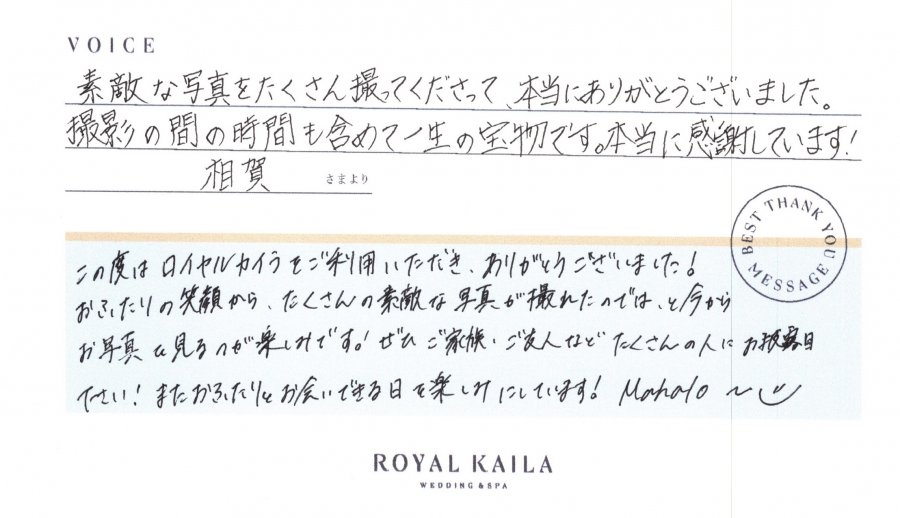 VOICE
素敵な写真をたくさん撮ってくださって、本当にありがとうございました。
撮影の間の時間も含めて一生の宝物です。本当に感謝しています!
相賀 さまより
BEST THANK YOU MESSAGE
この度はロイヤルカイラをご利用いただき、ありがとうございました!
おふたりの笑顔から、たくさんの素敵な写真が撮れたのでは、と今から
お写真を見るのが楽しみです!ぜひご家族・ご友人などたくさんの人にお披露目
下さい!またおふたりとお会いできる日を楽しみにしています! Mahalo ~
ROYAL KAILA
WEDDING & SPA